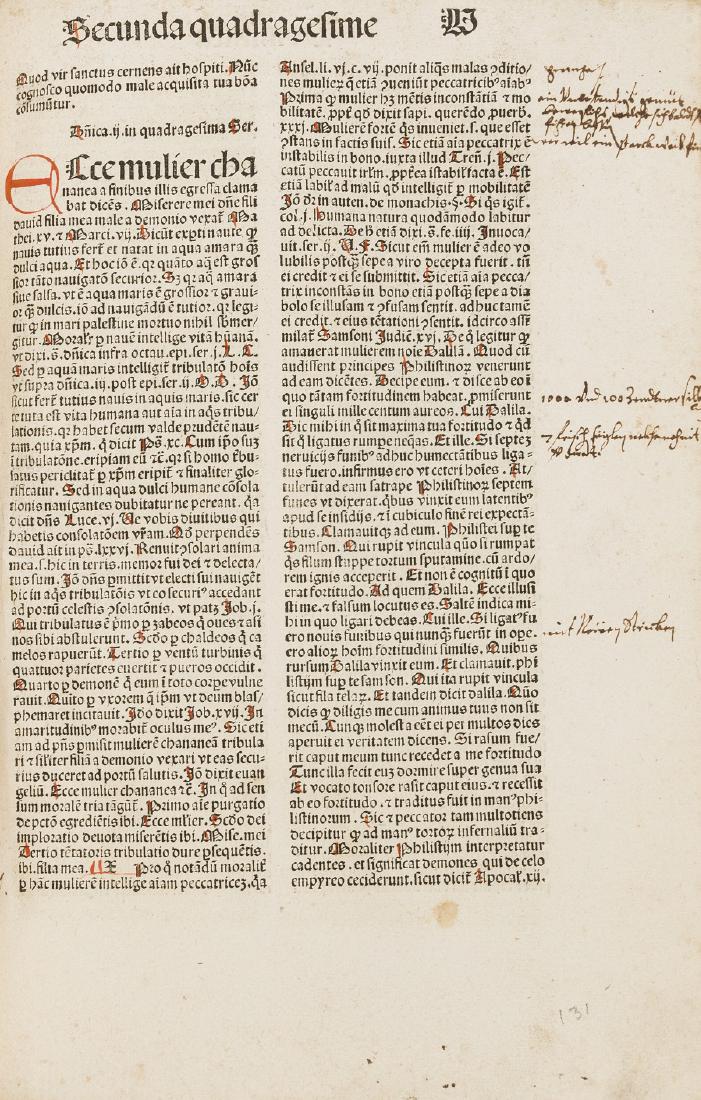 Secunda quadragesime LV
Quod vir sanctus cernens ait hospiti. Nūc
cognosco quomodo male acquisita tua bōa
cōsumūtur.
Dn̄ica.ij.in quadragesima Ser.
ECce mulier cha
nanea a finibus illis egressa clama
bat dicēs. Miserere mei dn̄e fili
dauid filia mea male a demonio vexat᷑ Ma
thei.xv. ⁊ Marci.vij. Sicut exptīnaute ꝙ
nauis tutius fert᷑ et natat in aqua amara ꝙ̄
dulci aqua. Et hoc iō ē.qr quāto aq̄ est gros
sior tāto nauigatō securior. Sꝫ qr aq̄ amara
siue salsa. vt ē aqua maris ē grossior ⁊ graui/
or ꝙ̄ dulcis.iō ad nauigādū ē tutior. qr legi/
tur ꝙ in mari palestine mortuo nihil sb̄mer/
gitur. Moralr̄ ꝑ nauē intellige vitā hūanā.
vt dixi.s. dn̄ica infra octau.epi.ser.j.L. C.
Sed ꝑ aquā maris intelligit᷑ tribulatō hoīs
vt supra dn̄ica.iij.post epi.ser.ij.O.D. Iō
sicut fert᷑ tutius nauis in aquis maris.sic cer
te tuta est vita humana aut aīa in aq̄s tribu/
lationis.qr habet secum valde prudētē nau/
tam.quia xp̄m. q̄ dicit Ps̄.xc. Cum ip̄o suꝫ
ī tribulatōne.eripiam eū ⁊c̄.qr si homo t̄bu/
latus periclitat᷑ ꝑ xp̄m eripit᷑ ⁊ finaliter glo/
rificatur. Sed in aqua dulci humane cōsola
tionis nauigantes dubitatur ne pereant. q̄a
dicit dn̄s Luce.vj. Ue vobis diuitibus qui
habetis consolatōem vr̄am. Qd̄ perpendēs
dauid ait in ps̄.lxxvj. Renuit ꝯsolari anima
mea.s.hic in terris.memor fui dei ⁊ delecta/
tus sum. Iō dn̄s ꝑmittit vt electi sui nauigēt
hic in aq̄s tribulatōis vt eo securiꝰ accedant
ad portū celestis ꝯsolatōnis. vt patꝫ Iob.j.
Qui tribulatus ē p̄mo ꝑ zabeos q̄ oues ⁊ asi
nos sibi abstulerunt. Scd̄o ꝑ chaldeos q̄ ca
melos rapuerūt. Tertio ꝑ ventū turbinis q̄
quattuor parietes euertit ⁊ pueros occidit.
Quarto ꝑ demonē q̄ eum ī toto corpe vulne
rauit. Quīto ꝑ vxorem q̄ ip̄m vt deum blas/
phemaret incitauit. Idō dixit Iob.xvij. In
amaritudinibꝰ morabit᷑ oculus meꝰ. Sic eti
am ad p̄ns ꝑmisit mulierē chananeā tribula
ri ⁊ sil̄iter filiā a demonio vexari vt eas secu/
rius duceret ad portū salutis. Iō dixit euan
geliū. Ecce mulier chananea ⁊c̄. In q̄ ad sen
sum moralē tria tāgūt᷑. Primo aīe purgatio
de pctō egrediētis ibi. Ecce mulier. Scd̄o dei
imploratio deuota miserētis ibi. Mise.mei
Tertio tētatoris tribulatio dure ꝑsequētis.
ibi.filia mea. X Pro q̄ notādū moralit᷑
ꝑ hāc mulierē intellige aīam peccatriceꝫ.q̄a
Ansel.li.vj.c.vij.ponit aliq̄s malas ꝯditio/
nes mulieꝝ q̄ etiā ꝯueniūt peccatricibꝰ aīabꝰ
Prima ꝙ mulier hꝫ mētis incostātiā ⁊ mo
bilitatē. ꝓpt᷑ qd̄ dixit sapi. querēdo.puerb.
xxxj. Mulierē fortē q̄s inueniet.s. que esset
ꝯstans in factis suis. Sic etiā aīa peccatrix ē
instabilis in bono.iuxta illud Tren̄.j. Pec/
catū peccauit irl̄m.ꝓpt᷑ea īstabil̄ facta ē. Est
etiā labil̄ ad malū qd̄ intelligit᷑ ꝑ mobilitatē
Iō dr̄ in auten.de monachis.§. Si q̄s igit᷑.
col.j. Humana natura quodāmodo labitur
ad delicta. De h̄ etiā dixi.s.fe.iiij. Inuoca/
uit.ser.ij. U.F. Sicut em̄ mulier ē adeo vo
lubilis postꝙ̄ sepe a viro decepta fuerit.tn̄
ei credit ⁊ ei se submittit. Sic etiā aīa pecca/
trix inconstās in bono etiā postꝙ̄ sepe a dia
bolo se illusam ⁊ ꝯfusam sentit.adhuc tamē
ei credit.⁊ eius tētationi ꝯsentit.idcirco assi
milat᷑ Samsoni Iudic̄.xvj. De q̄ legitur ꝙ
amauerat mulierem noīe Dalila. Quod cū
audissent principes Philistinoꝝ venerunt
ad eam dicētes. Decipe eum.⁊ disce ab eo ī
quo tātam fortitudinem habeat.ꝓmiserunt
ei singuli mille centum aureos. Cui Dalila.
Dic mihi in q̄ sit maxima tua fortitudo ⁊ qd̄
sit q̄ ligatus rumpe neq̄as. Et ille. Si septeꝫ
neruicijs funibꝰ adhuc humectātibus liga/
tus fuero.infirmus ero vt ceteri hoīes. At/
tulerūt ad eam satrape Philistinoꝝ septem
funes vt dixerat.q̄bus vinxit eum latentibꝰ
apud se insidijs.⁊ ī cubiculo finē rei expectā/
tibus. Clamauitqꝫ ad eum. Philistei suꝑ te
Samson. Qui rupit vincula quō si rumpat
q̄s filum stuppe tortum sputamine.cū ardo/
rem ignis acceperit. Et non ē cognitū ī quo
erat fortitudo. Ad quem Dalila. Ecce illusi
sti me.⁊ falsum locutus es. Saltē indica mi/
hi in quo ligari debeas. Cui ille. Si ligatꝰ fu
ero nouis funibus qui nunꝙ̄ fuerūt in ope.
ero alioꝝ hoīm fortitudini similis. Quibus
rursum Dalila vinxit eum. Et clamauit.phi
listijm suꝑ te samson. Qui ita rupit vincula
sicut fila telaꝝ. Et tandem dicit Dalila. Quō
dicis ꝙ diligis me cum animus tuus non sit
mecū. Cunqꝫ molesta eēt ei per multos dies
aperuit ei veritatem dicens. Si rasum fue/
rit caput meum tunc recedet a me fortitudo
Tunc illa fecit euꝫ dormire super genua sua
Et vocato tonsore rasit caput eius.⁊ recessit
ab eo fortitudo.⁊ traditus fuit in manꝰ phi-
listinorum. Sic ⁊ peccator tam multotiens
decipitur ꝙ ad manꝰ tortoꝝ infernaliū tra-
ditur. Moraliter Philistijm interpretatur
cadentes.et significat demones qui de celo
empyreo ceciderunt.sicut dicit᷑ Apocal̄.xij.
131